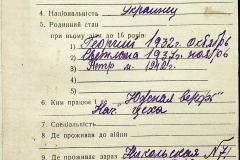 4. Національність украинец
5. Родинний стан
при ньому діти до 16 років:
1) Георгий 1932г. октябрь
2) Светлана 1937г. ноябрь
3) Петр м. 1940г.
4)
5)
6. Ким працює і де "Южная верфь"
Нач. цеха
7.
8. Де проживав до війни
9. Де проживає зараз Никольская N 71